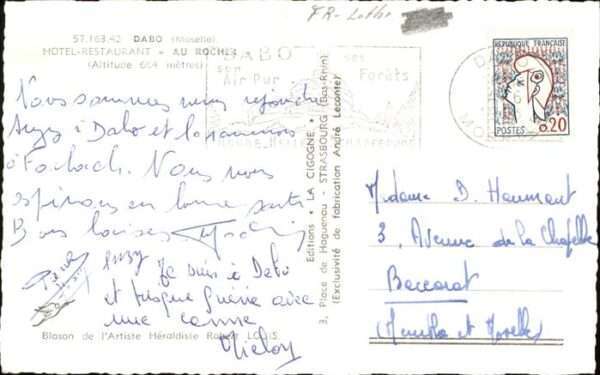 FR-
57.163.42 DABO (Moselle)
HOTEL-RESTAURANT "AU ROCHER"
(Altitude 664 mètres)
DABO
son ses
Air Pur Forêts
Nous sommes venus rejoindre
Suzy à Dabo et la ramenons
à Forbach. Nous vous
espérons en bonne santé
Bons baisers
Suzy
Je suis à Dabo
et presque guérie avec
une canne
Blason de l'Artiste Héraldiste Robert LOUIS.
Editions "LA CIGOGNE"
3, Place de Haguenau - STRASBOURG (Bas-Rhin)
(Exclusivité de fabrication André Leconte)
RÉPUBLIQUE FRANÇAISE
POSTES 0,20
DABO
Madame D. Haumant
3, Avenue de la Chapelle
Baccarat
(Meurthe et Moselle)